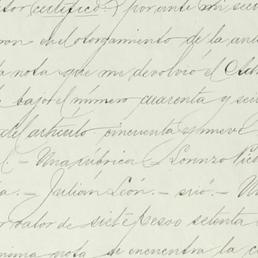 tor certifico: por ante mi secre
ron en el otorgamiento de la ante
la nota que me devolvió el
bajo el número cuarenta y se
del artículo cincuenta y nueve
Una rúbrica Lorenzo
a.- Julian León.- srio.- Un
r valor de siete pesos setenta
misma nota se encuentra la c